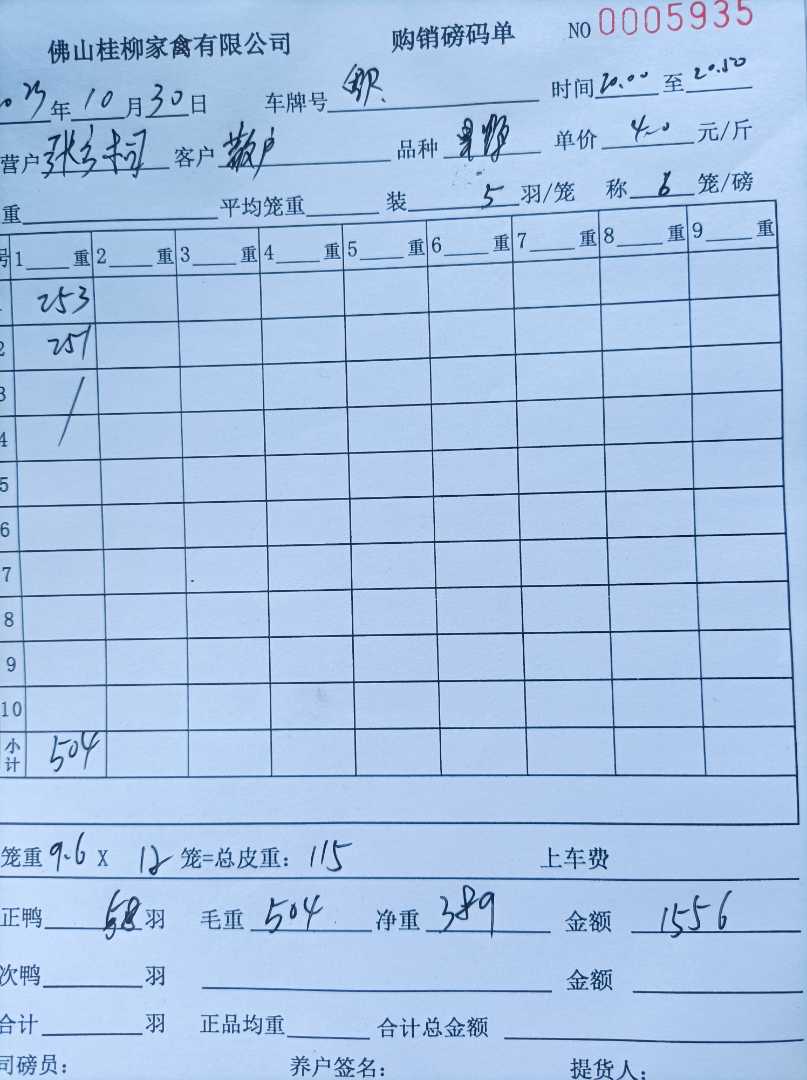 佛山桂柳家禽有限公司 购销磅码单 NO 0005935
23年10月30日 车牌号 时间20.00至20.50
营户张 客户散户 品种 单价4.0元/斤
重 平均笼重 装5羽/笼 称6笼/磅
号 1 重 2 重 3 重 4 重 5 重 6 重 7 重 8 重 9 重
253
2 251
3
4
5
6
7
8
9
10
小计 504
笼重9.6 X 12笼=总皮重：115 上车费
正鸭58羽 毛重504 净重389 金额1556
次鸭 羽 金额
合计 羽 正品均重 合计总金额
司磅员： 养户签名： 提货人：